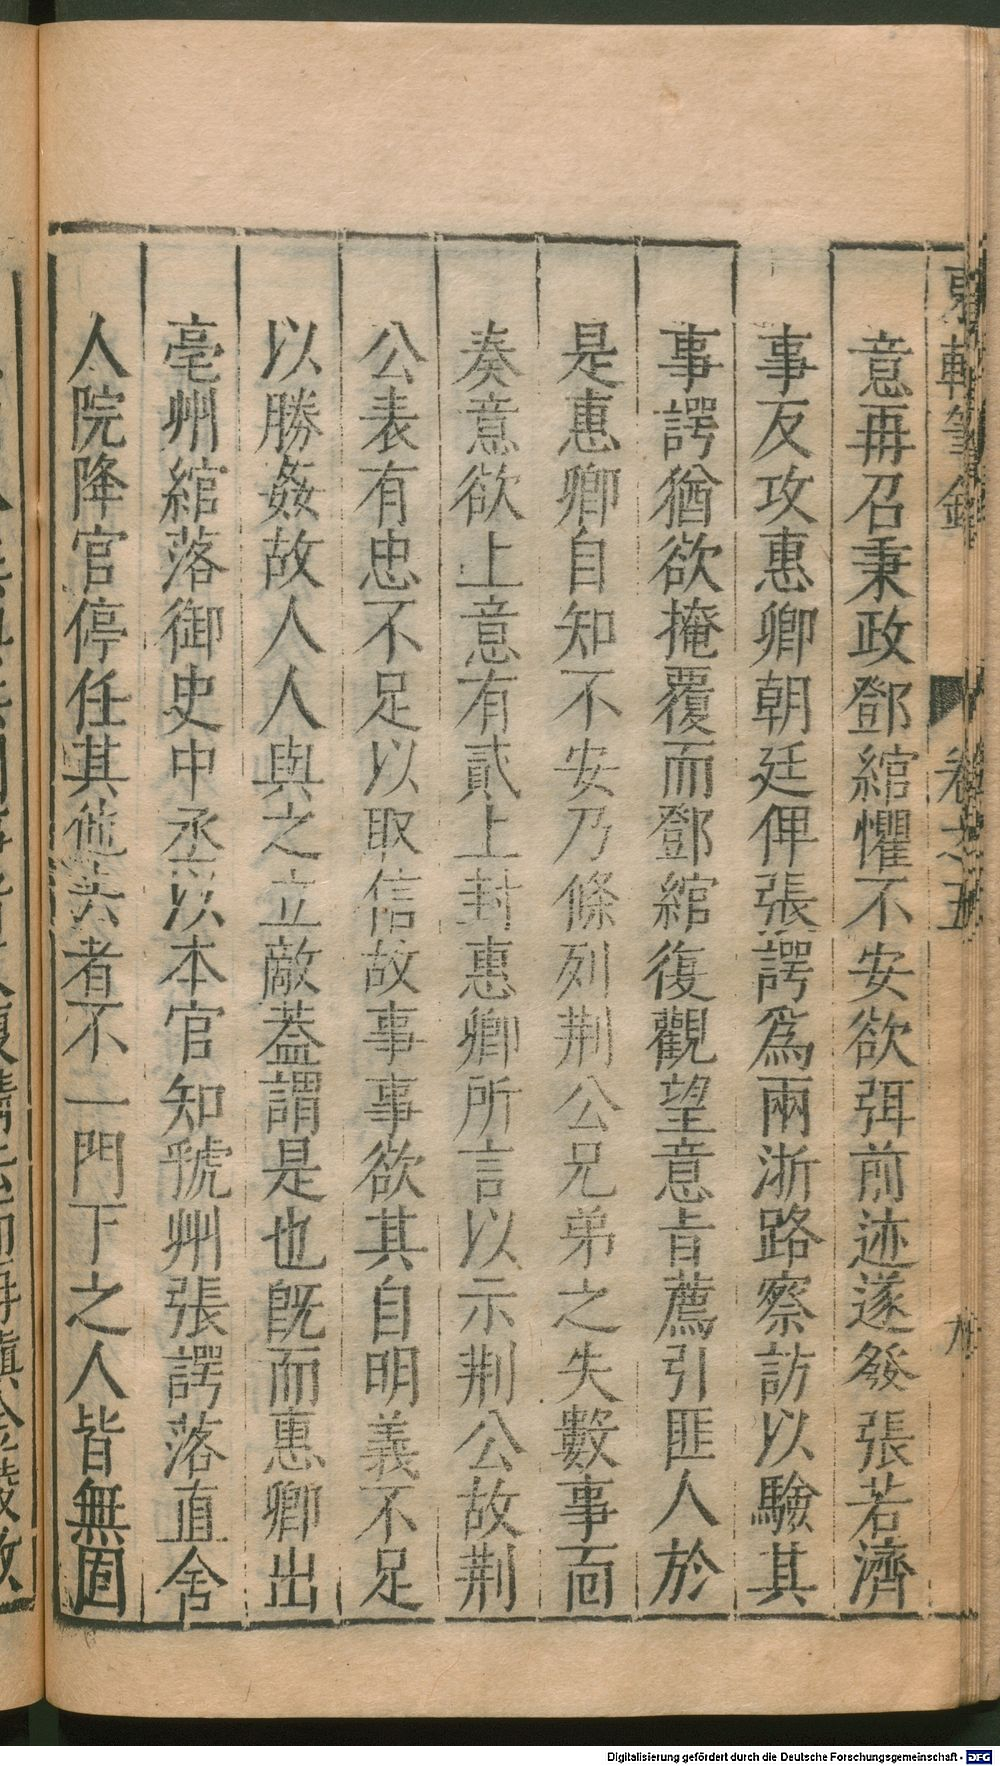 東軒筆錄 卷之五
意再召秉政鄧綰懼不安欲弭前迹遂發張若濟
事反攻惠卿朝廷俾張諤爲兩浙路察訪以驗其
事諤猶欲掩覆而鄧綰復觀望意旨薦引匪人於
是惠卿自知不安乃條列荆公兄弟之失數事面
奏意欲上意有貳上封惠卿所言以示荆公故荆
公表有忠不足以取信故事事欲其自明義不足
以勝姦故人人與之立敵蓋謂是也旣而惠卿出
亳州綰落御史中丞以本官知虢州張諤落直舍
人院降官停任其他去者不一門下之人皆無固
Digitalisierung gefördert durch die Deutsche Forschungsgemeinschaft - DFG